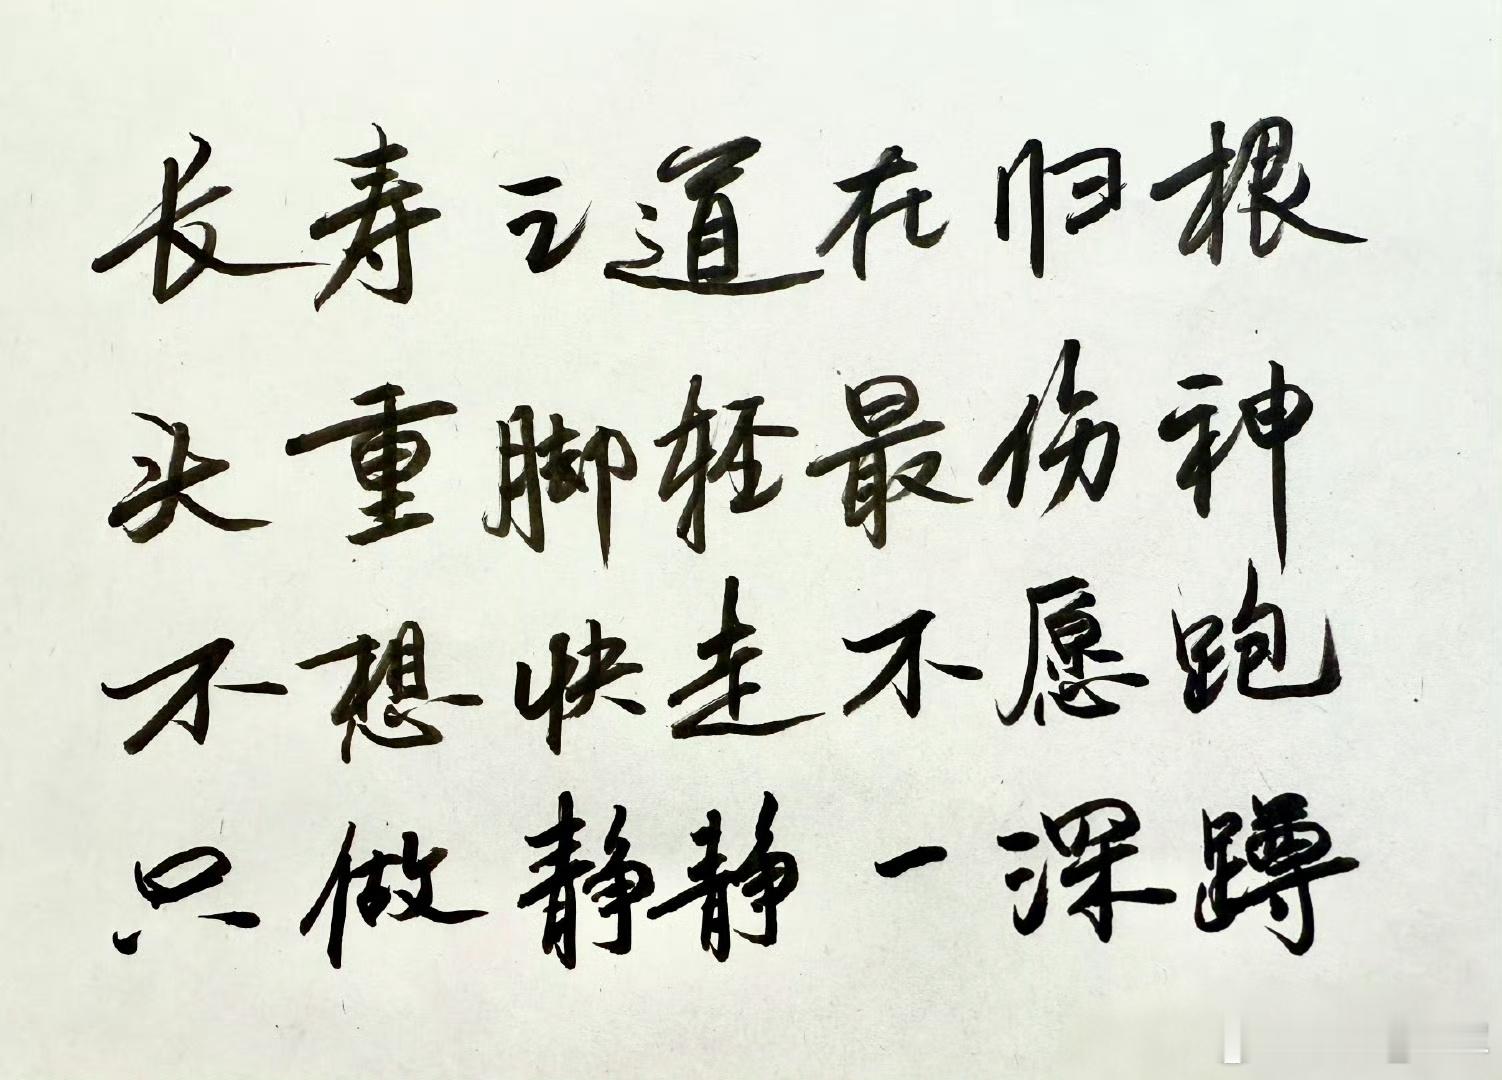 长寿之道在归根
头重脚轻最伤神
不想快走不愿跑
只做静静一深蹲